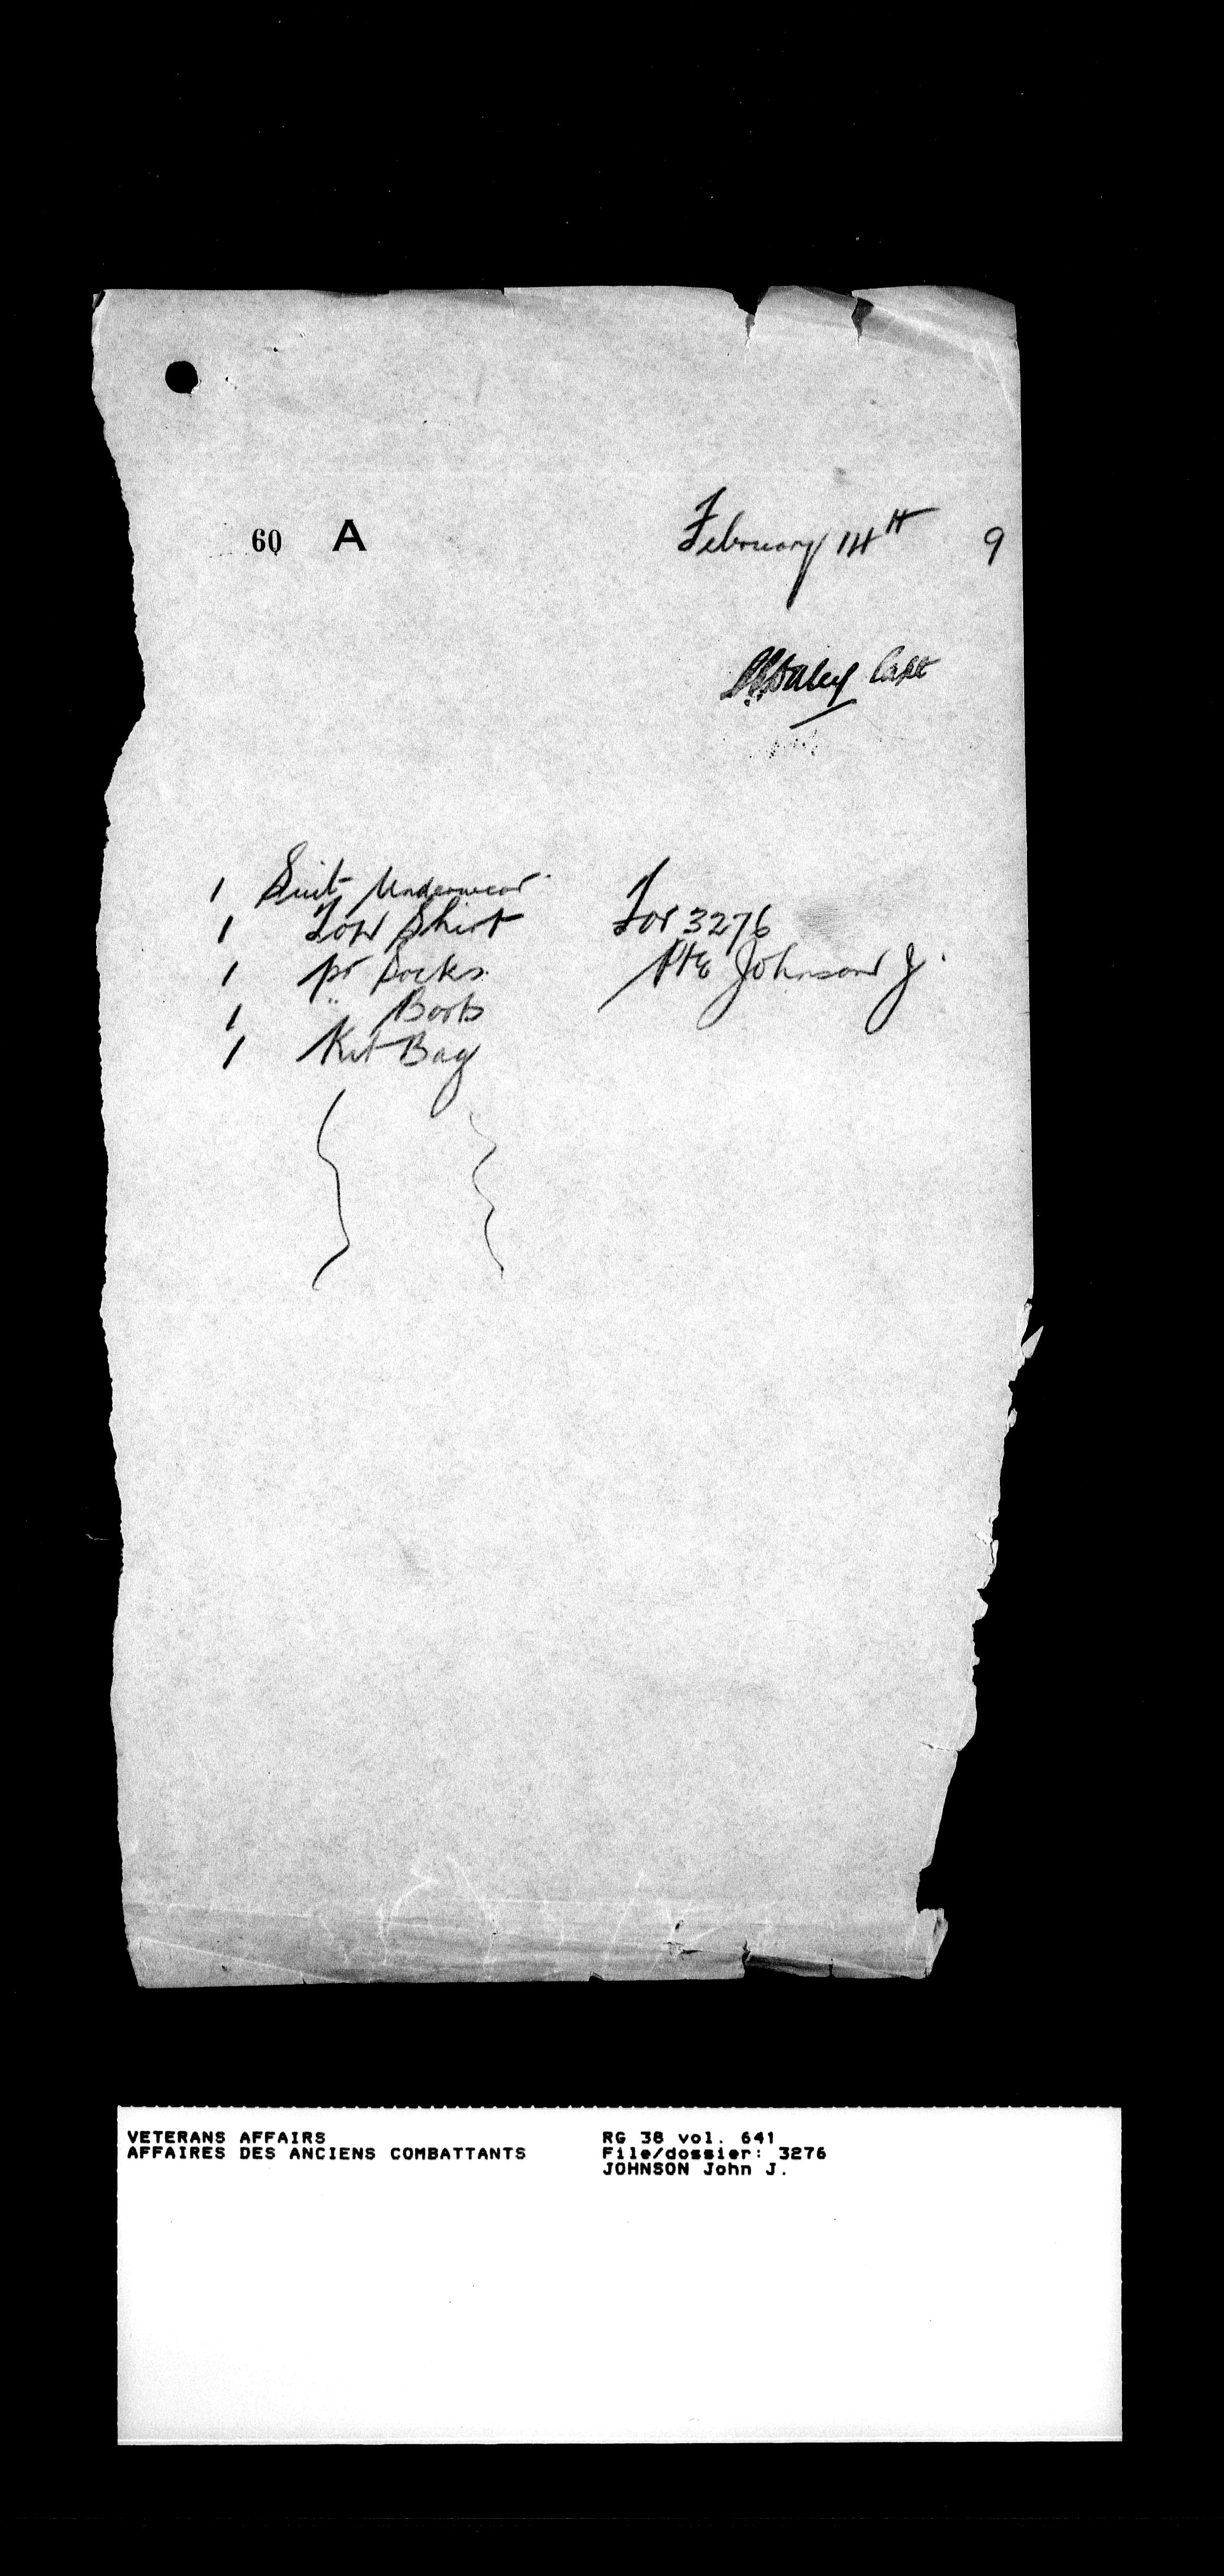 60 A
February 14th 9
Capt
1 Suit Underwear
1 Tow Shirt
For 3276
1 pr Socks
Pte Johnson J.
1 " Boots
1 Kit Bag
VETERANS AFFAIRS
AFFAIRES DES ANCIENS COMBATTANTS
RG 38 vol. 641
File/dossier: 3276
JOHNSON John J.